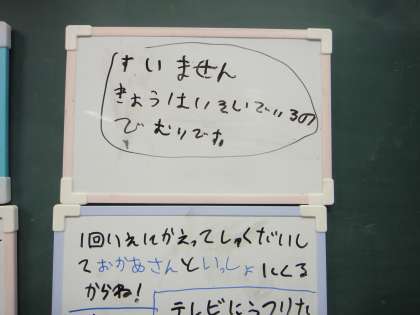 すいません
きょうはいそいでいるの
でむりです
1回いえにかえってしゅくだいし
ておかあさんといっしょにくる
からね!
テレビにうつりた